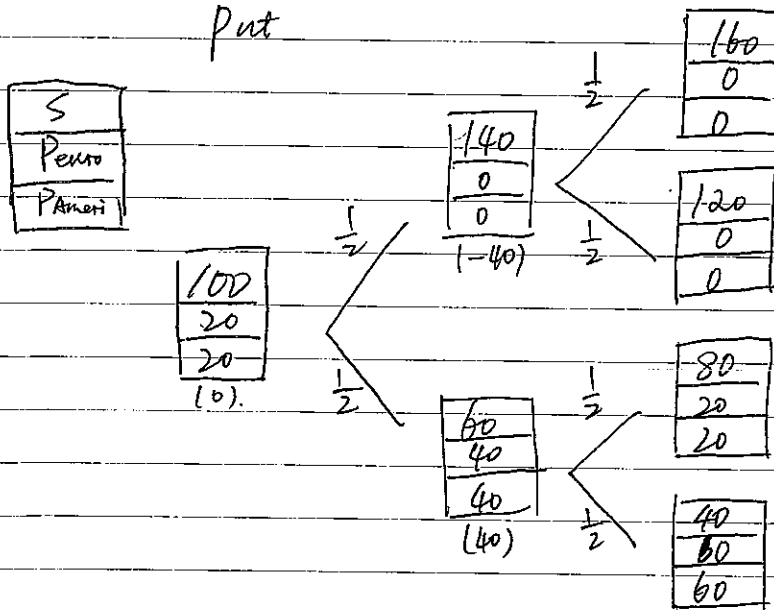 Put
S
Peuro
PAmeri
100
20
20
(0).
1/2
1/2
140
0
0
(-40)
60
40
40
(40)
1/2
1/2
1/2
1/2
160
0
0
120
0
0
80
20
20
40
60
60